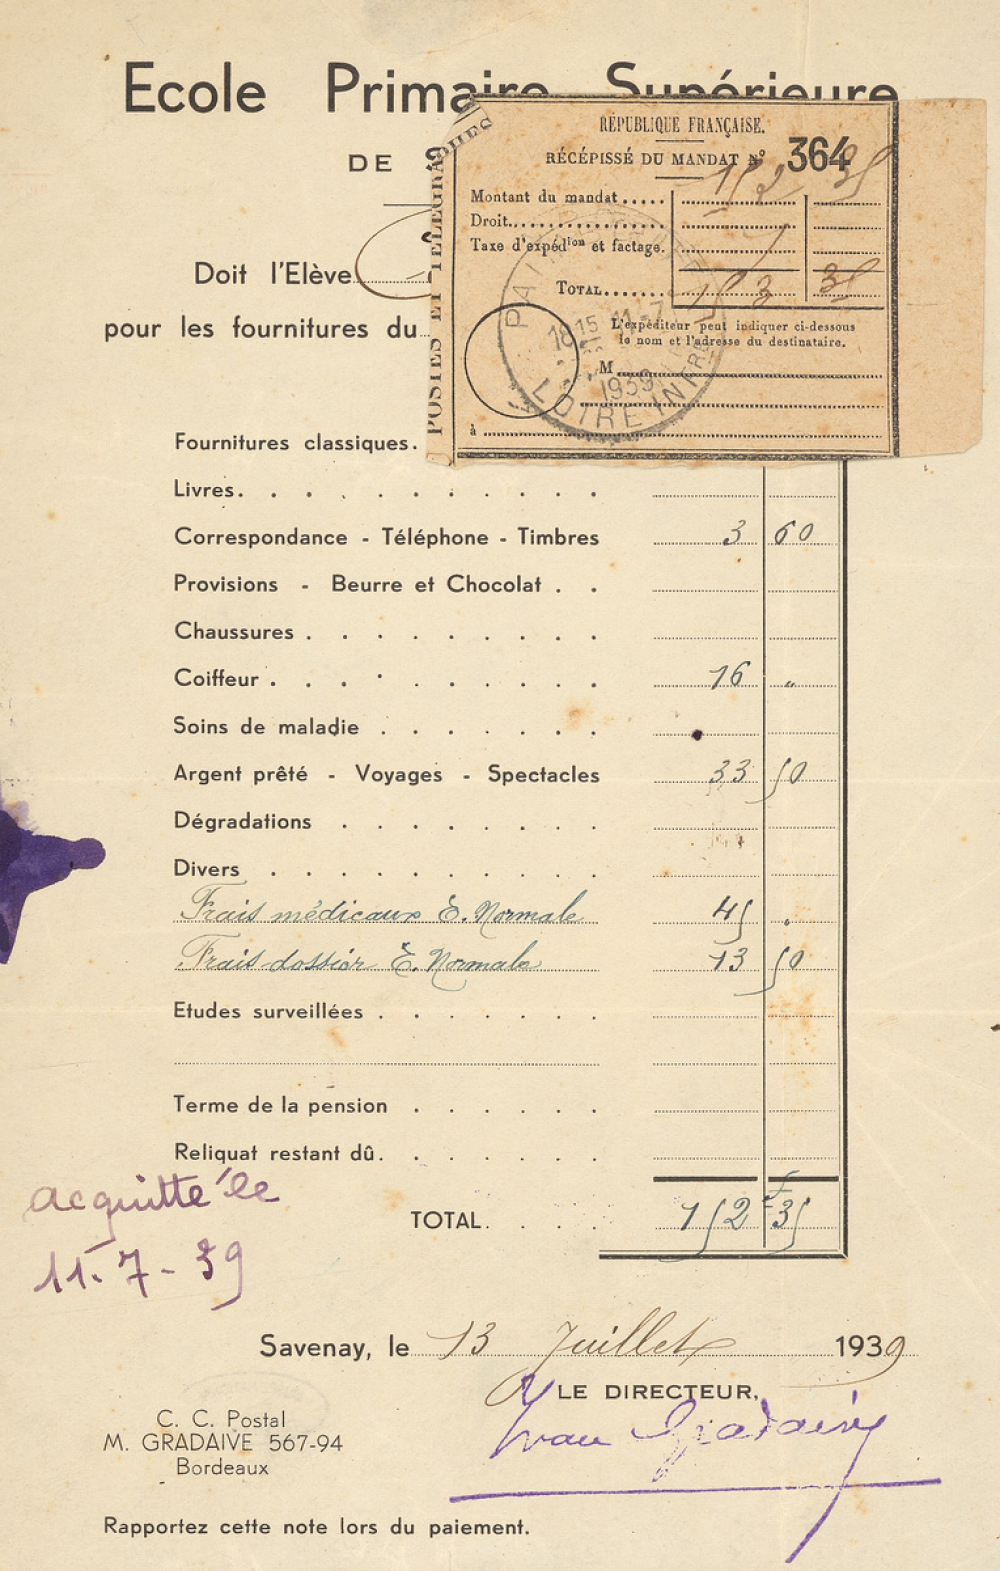 Ecole Primaire Supérieure
DE
Doit l'Elève
pour les fournitures du
POSTES ET TÉLÉGRAPHES
RÉPUBLIQUE FRANÇAISE.
RÉCÉPISSÉ DU MANDAT Nº 364
Montant du mandat..... 152 35
Droit.. 1
Taxe d'expédion et factage.
TOTAL....... 153 35
L'expéditeur peut indiquer ci-dessous
le nom et l'adresse du destinataire.
M
à
15 11-7
1939
LOIRE INFRE
Fournitures classiques.
Livres. . . . . . . . . . .
Correspondance - Téléphone - Timbres 3 60
Provisions - Beurre et Chocolat . .
Chaussures . . . . . . . . .
Coiffeur . . . . . . . . . . 16 "
Soins de maladie . . . . . . .
Argent prêté - Voyages - Spectacles 33 50
Dégradations . . . . . . . .
Divers . . . . . . . . . . .
Frais médicaux E. Normale 45 "
Frais dossier E. Normale 13 50
Etudes surveillées . . . . . . .
Terme de la pension . . . . . .
Reliquat restant dû. . . . . . .
TOTAL. . . . 152 F 35
acquitté le
11-7-39
Savenay, le 13 Juillet 1939
LE DIRECTEUR,
Yvan Gradaive
C. C. Postal
M. GRADAIVE 567-94
Bordeaux
Rapportez cette note lors du paiement.